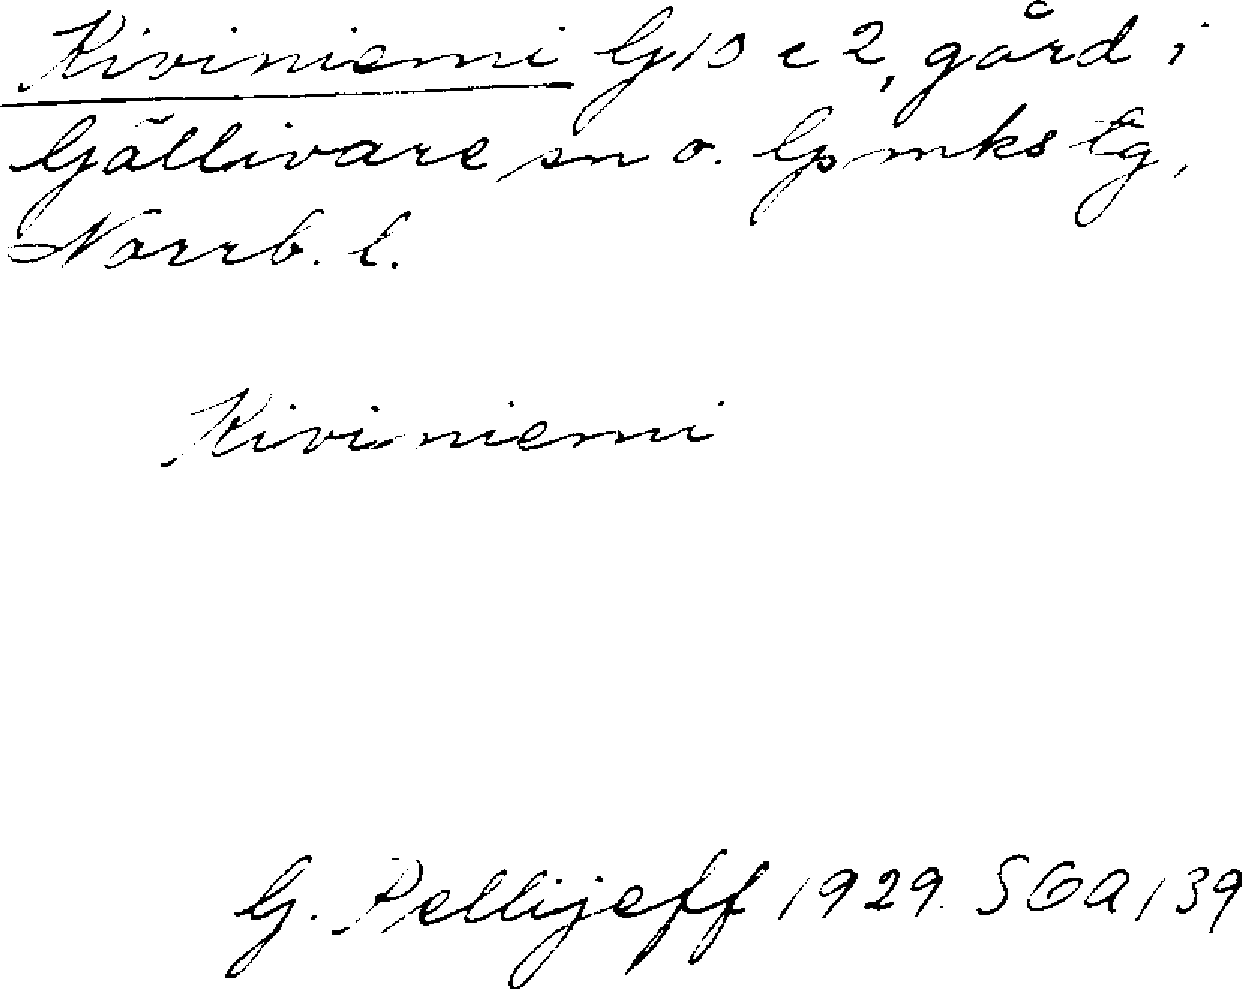 Kiviniemi G10 c 2, gård i
Gällivare sn o. Gs mks tg,
Norrb. l.
Kiviniemi
G. Pellijeff 1929. SOA 139